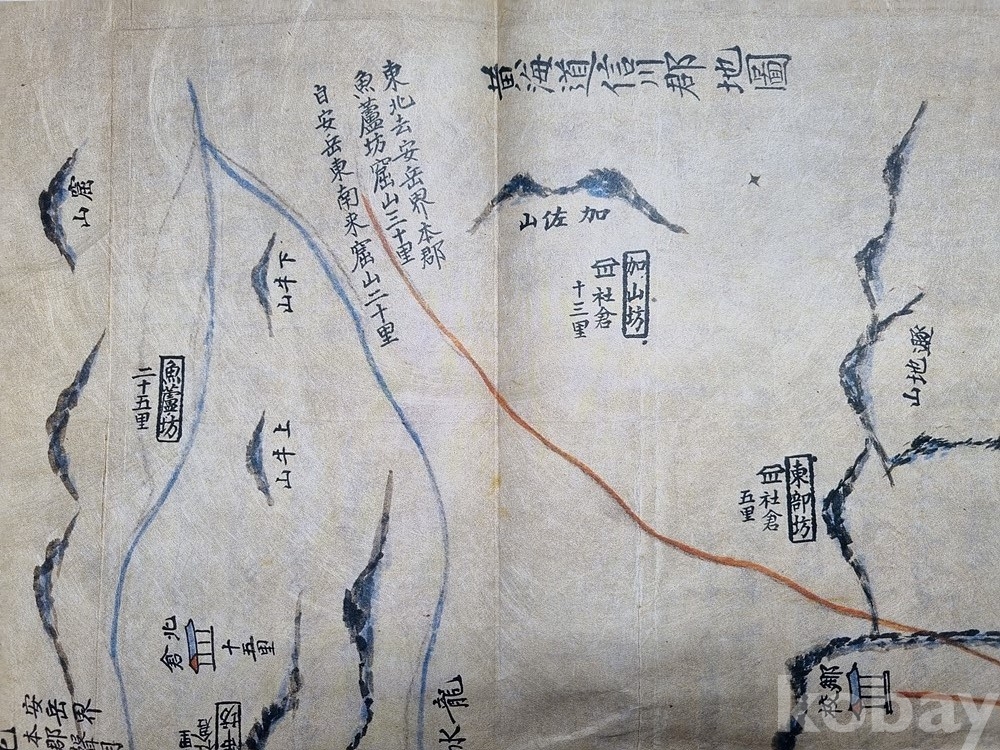 黃海道信川郡地圖
東北去安岳界本郡
魚蘆坊窟山三十里
自安岳東南来窟山二十里
加佐山
加山坊
社倉
十三里
逐地山
東部坊
社倉
五里
窟山
下牛山
上牛山
魚蘆坊
二十五里
北倉
十五里
龍
水
安岳界
本郡
kobay